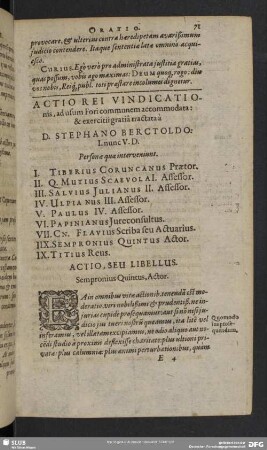 ORATIO. 71
provocare, & ulterius contra hæredipetam avarissimum
judicio contendere. Itaque sententia lata omnino acqui-
esco.
CURIUS. Ego verò pro administrata justitia gratias,
quas possum, vobis ago maximas: DEUM quoq, rogo: diu
vos nobis, Reiq, publ. nostræ præstare incolumes dignetur.
ACTIO REI VINDICATIO-
nis, ad usum Fori communem accommodata:
& exercitii gratiâ tractata à
D. STEPHANO BERCTOLDO:
I. nunc V. D.
Personæ quæ interveniunt.
I. TIBERIUS CORUNCANUS Prætor.
II. Q. MUTIUS SCÆVOLA I. Assessor.
III. SALVIUS JULIANUS II. Assessor.
IV. ULPIANUS III. Assessor.
V. PAULUS IV. Assessor.
VI. PAPINIANUS Jureconsultus.
VII. CN. FLAVIUS Scriba seu Actuarius.
IIX. SEMPRONIUS QUINTUS Actor.
IX. TITIUS Reus.
ACTIO, SEU LIBELLUS.
Sempronius Quintus, Actor.
in omnibus vitæ actionib. tenenda est mo-
deratio, viri nobilissimi & prudentiss. ne in-
jurias cupidè prosequamur: aut si in nos ju-
dicio jus tueri nostrũ queamus, ita lite vel
inferamus, vel illatam excipiamus, ne odio aliquo aut no-
cēdi studio à proximi deflexisse charitate: plus ultioni pri-
vatæ: plus calumniæ: plus animi perturbationibus, quam
E 4